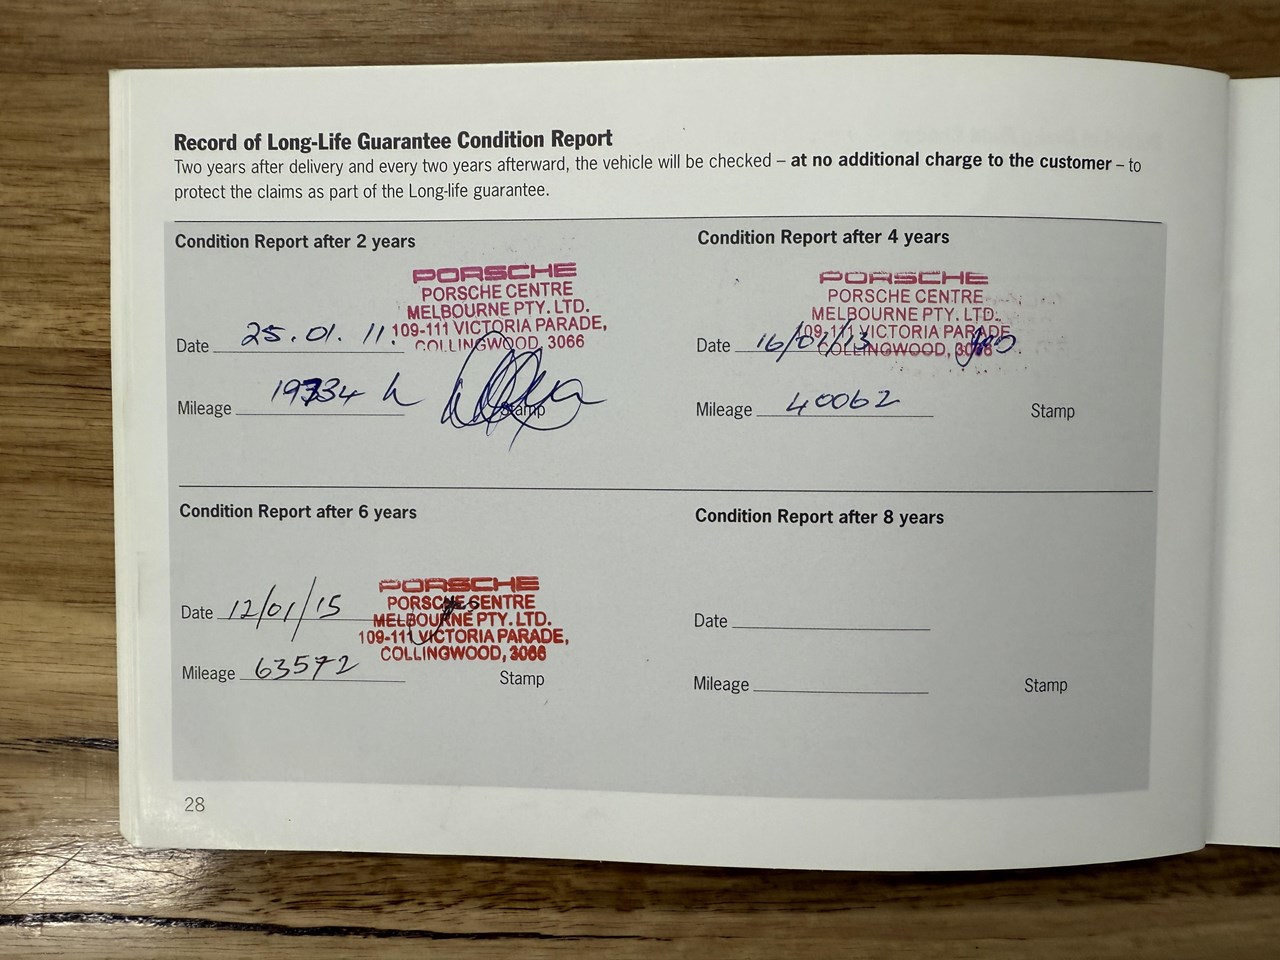 Record of Long-Life Guarantee Condition Report
Two years after delivery and every two years afterward, the vehicle will be checked – at no additional charge to the customer – to
protect the claims as part of the Long-life guarantee.
Condition Report after 2 years
PORSCHE
PORSCHE CENTRE
MELBOURNE PTY. LTD.
109-111 VICTORIA PARADE,
COLLINGWOOD, 3066
Date 25.01.11
Mileage 19334
Stamp
Condition Report after 4 years
PORSCHE
PORSCHE CENTRE
MELBOURNE PTY. LTD.
109-111 VICTORIA PARADE
COLLINGWOOD, 3066
Date 16/01/13
Mileage 40062
Stamp
Condition Report after 6 years
PORSCHE
PORSCHE CENTRE
MELBOURNE PTY. LTD.
109-111 VICTORIA PARADE,
COLLINGWOOD, 3066
Date 12/01/15
Mileage 63572
Stamp
Condition Report after 8 years
Date
Mileage
Stamp
28